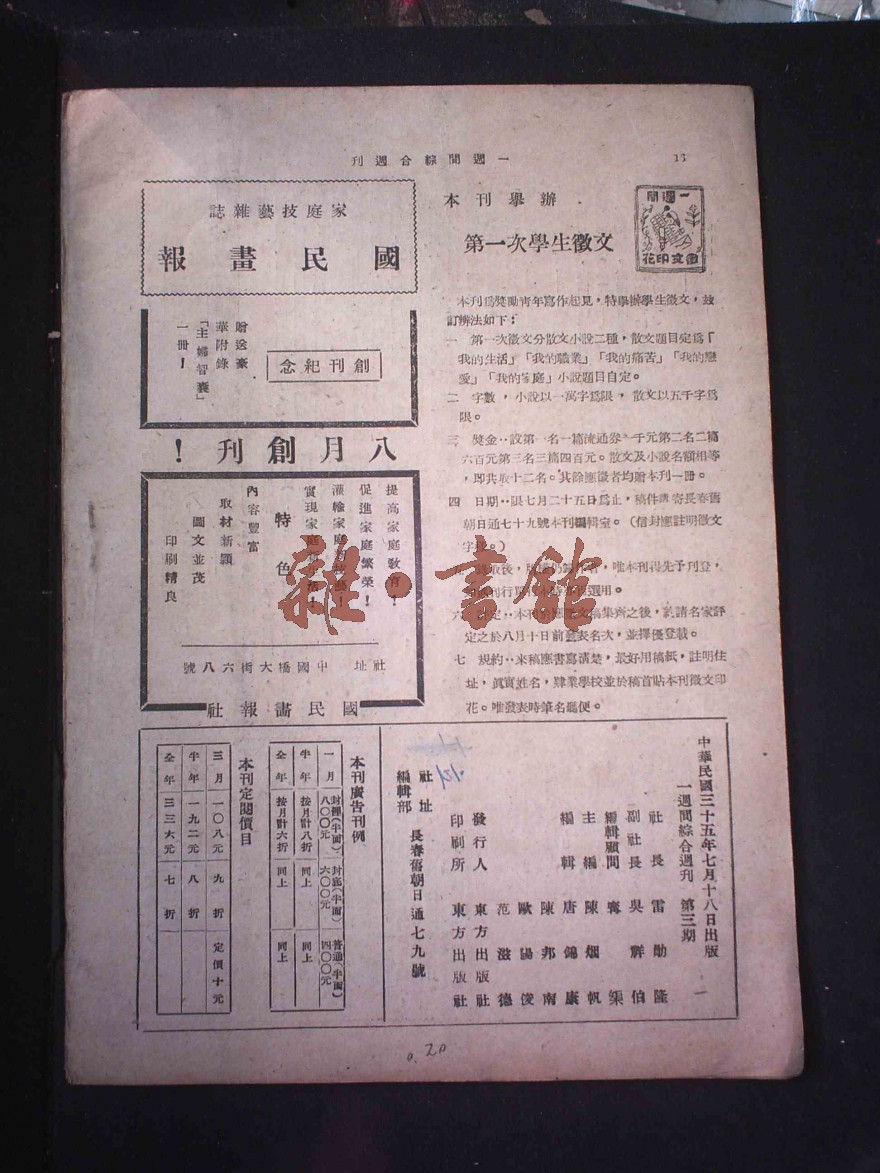 一週間綜合週刊
16
一週間
徵文印花
本刊舉辦
第一次學生徵文
本刊爲獎勵青年寫作起見，特舉辦學生徵文，茲
訂辦法如下：
一　第一次徵文分散文小說二種，散文題目定爲「
我的生活」「我的職業」「我的痛苦」「我的戀
愛」「我的家庭」小說題目自定。
二　字數，小說以一萬字爲限，散文以五千字爲
限。
三　獎金‥設第一名一篇流通券一千元第二名二篇
六百元第三名三篇四百元。散文及小說名額相等
，即共取十二名。其餘應徵者均贈本刊一冊。
四　日期‥限七月二十五日爲止，稿件請寄長春舊
朝日通七十九號本刊編輯室。（信封應註明徵文
字樣。）
取後，唯本刊得先予刊登，
選用。
六　定‥本刊於應徵文稿集齊之後，請名家評
定之於八月十日前發表名次，並擇優登載。
七　規約‥來稿應書寫清楚，最好用稿紙，註明住
址，眞實姓名，肄業學校並於稿首貼本刊徵文印
花。唯發表時筆名聽便。
家庭技藝雜誌
國民畫報
創刊紀念
贈送豪
華附錄
「主婦智囊」
一冊！
八月創刊！
提高家庭教育！
促進家庭繁榮！
灌輸家庭
實現家庭
特色
內容豐富
取材新穎
圖文並茂
印刷精良
社址　中國橋大街六八號
國民畫報社
中華民國三十五年七月十八日出版
一週間綜合週刊　第三期
社長　雷勛隆
副社長　吳辉伯
編輯顧問　
主編　陳烟帆
編輯　唐錦康
陳邦南
歐陽俊
范滋德
發行人　東方出版社
印刷所　東方出版社
社址
編輯部
長春舊朝日通七九號
本刊廣告刊例
一月　封裡(半面)八〇〇元　封底(半面)六〇〇元　普通(半面)四〇〇元
半年　按月計八折　同上　同上
全年　按月計六折　同上　同上
本刊定閱價目
三月　一〇八元　九折　定價十元
半年　一九二元　八折
全年　三三六元　七折
0.20
雜·書館